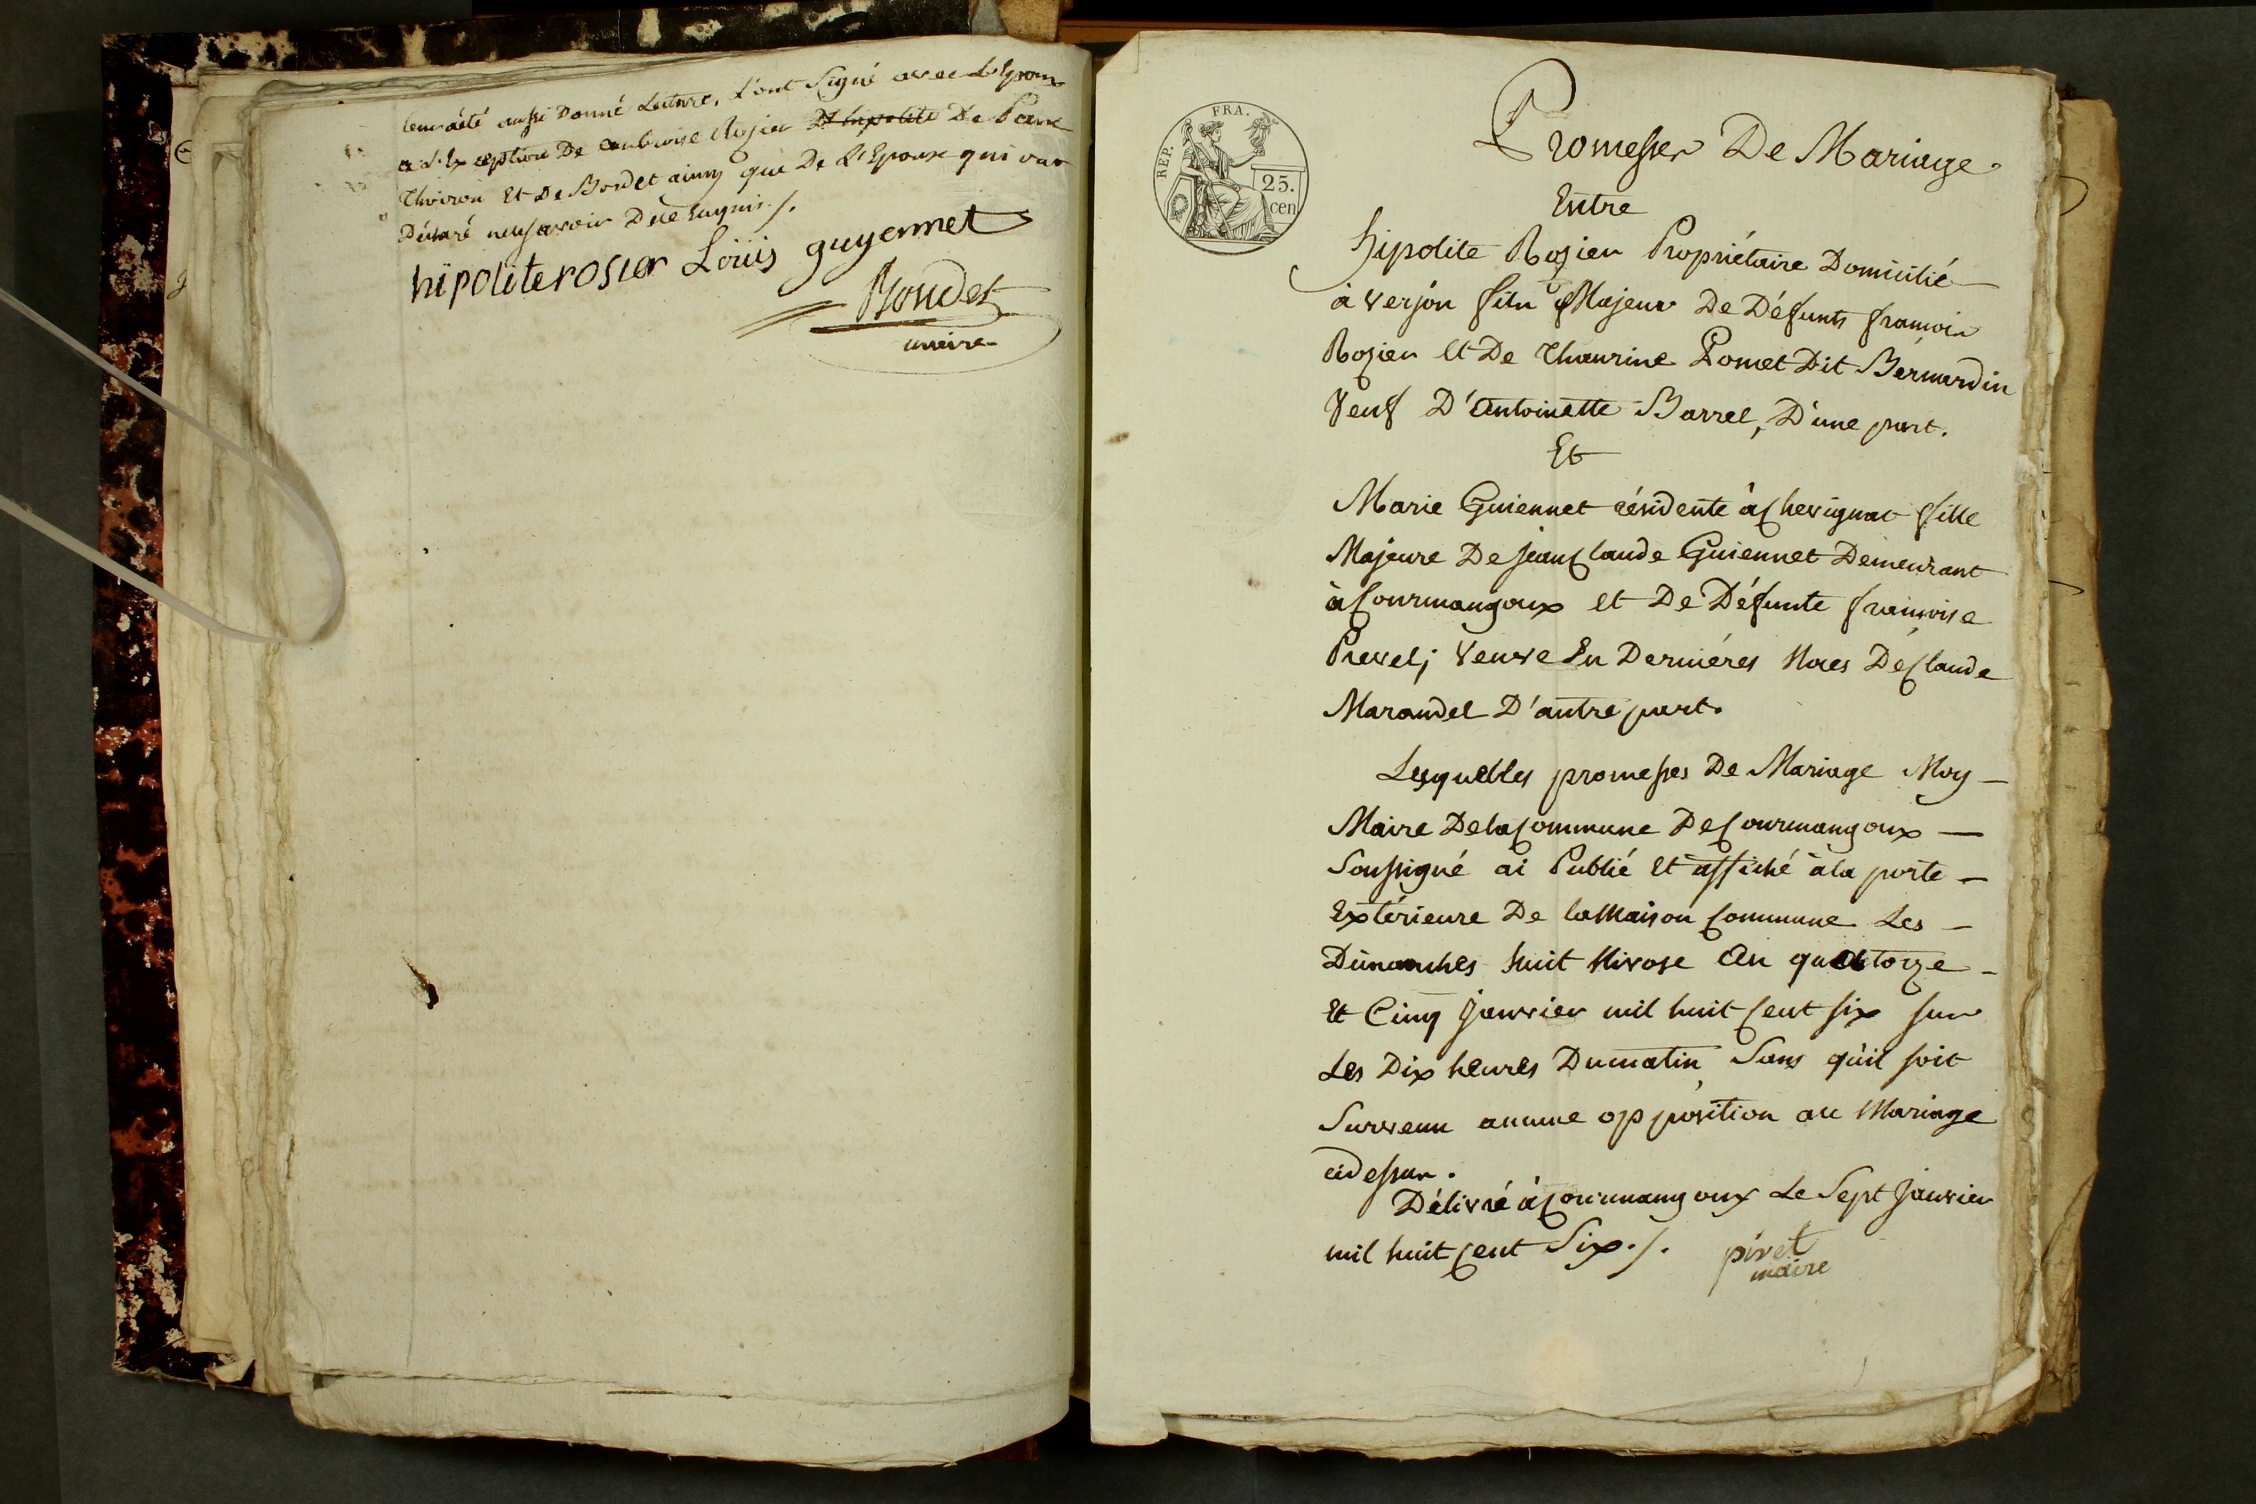 leur a été aussi Donné Lecture, L'ont Signé avec L'Epoux
a L'Exception De ambroise Rosier De
Thoiron Et De Bondet ainsy que De L'Epouse qui ont
Déclaré ne Savoir De ce Enquis ./.
hipolite rosier Loüis guyennet
Bondet
maire
REP. FRA.
25.
cen
Promesses De Mariage
Entre
hipolite Rosier Propriétaire Domicilié
à Verjon fils Majeur De Défunts françois
Rosier Et De Thaurine Pomet Dit Bernardin
Veuf D'Antoinette Barrel, D'une part.
Et
Marie Guiennet résidente à Chevignat fille
Majeure De Jean Claude Guiennet Demeurant
à Courmangoux et De Défunte françoise
Prevel; Veuve En Derniéres Noces De Claude
Marandel D'autre part.
Lesquelles promesses De Mariage Moy
Maire De la Commune De Courmangoux
Soussigné ai Publié Et affiché à la porte
Extérieure De la Maison Commune Les
Dimanches huit Nivose An quatorze
Et Cinq Janvier mil huit Cent six sur
Les Dix heures Du matin Sans qu'il soit
Survenu aucune opposition au Mariage
cidessus.
Délivré à Courmangoux Le Sept Janvier
mil huit Cent Six ./. pivet
maire